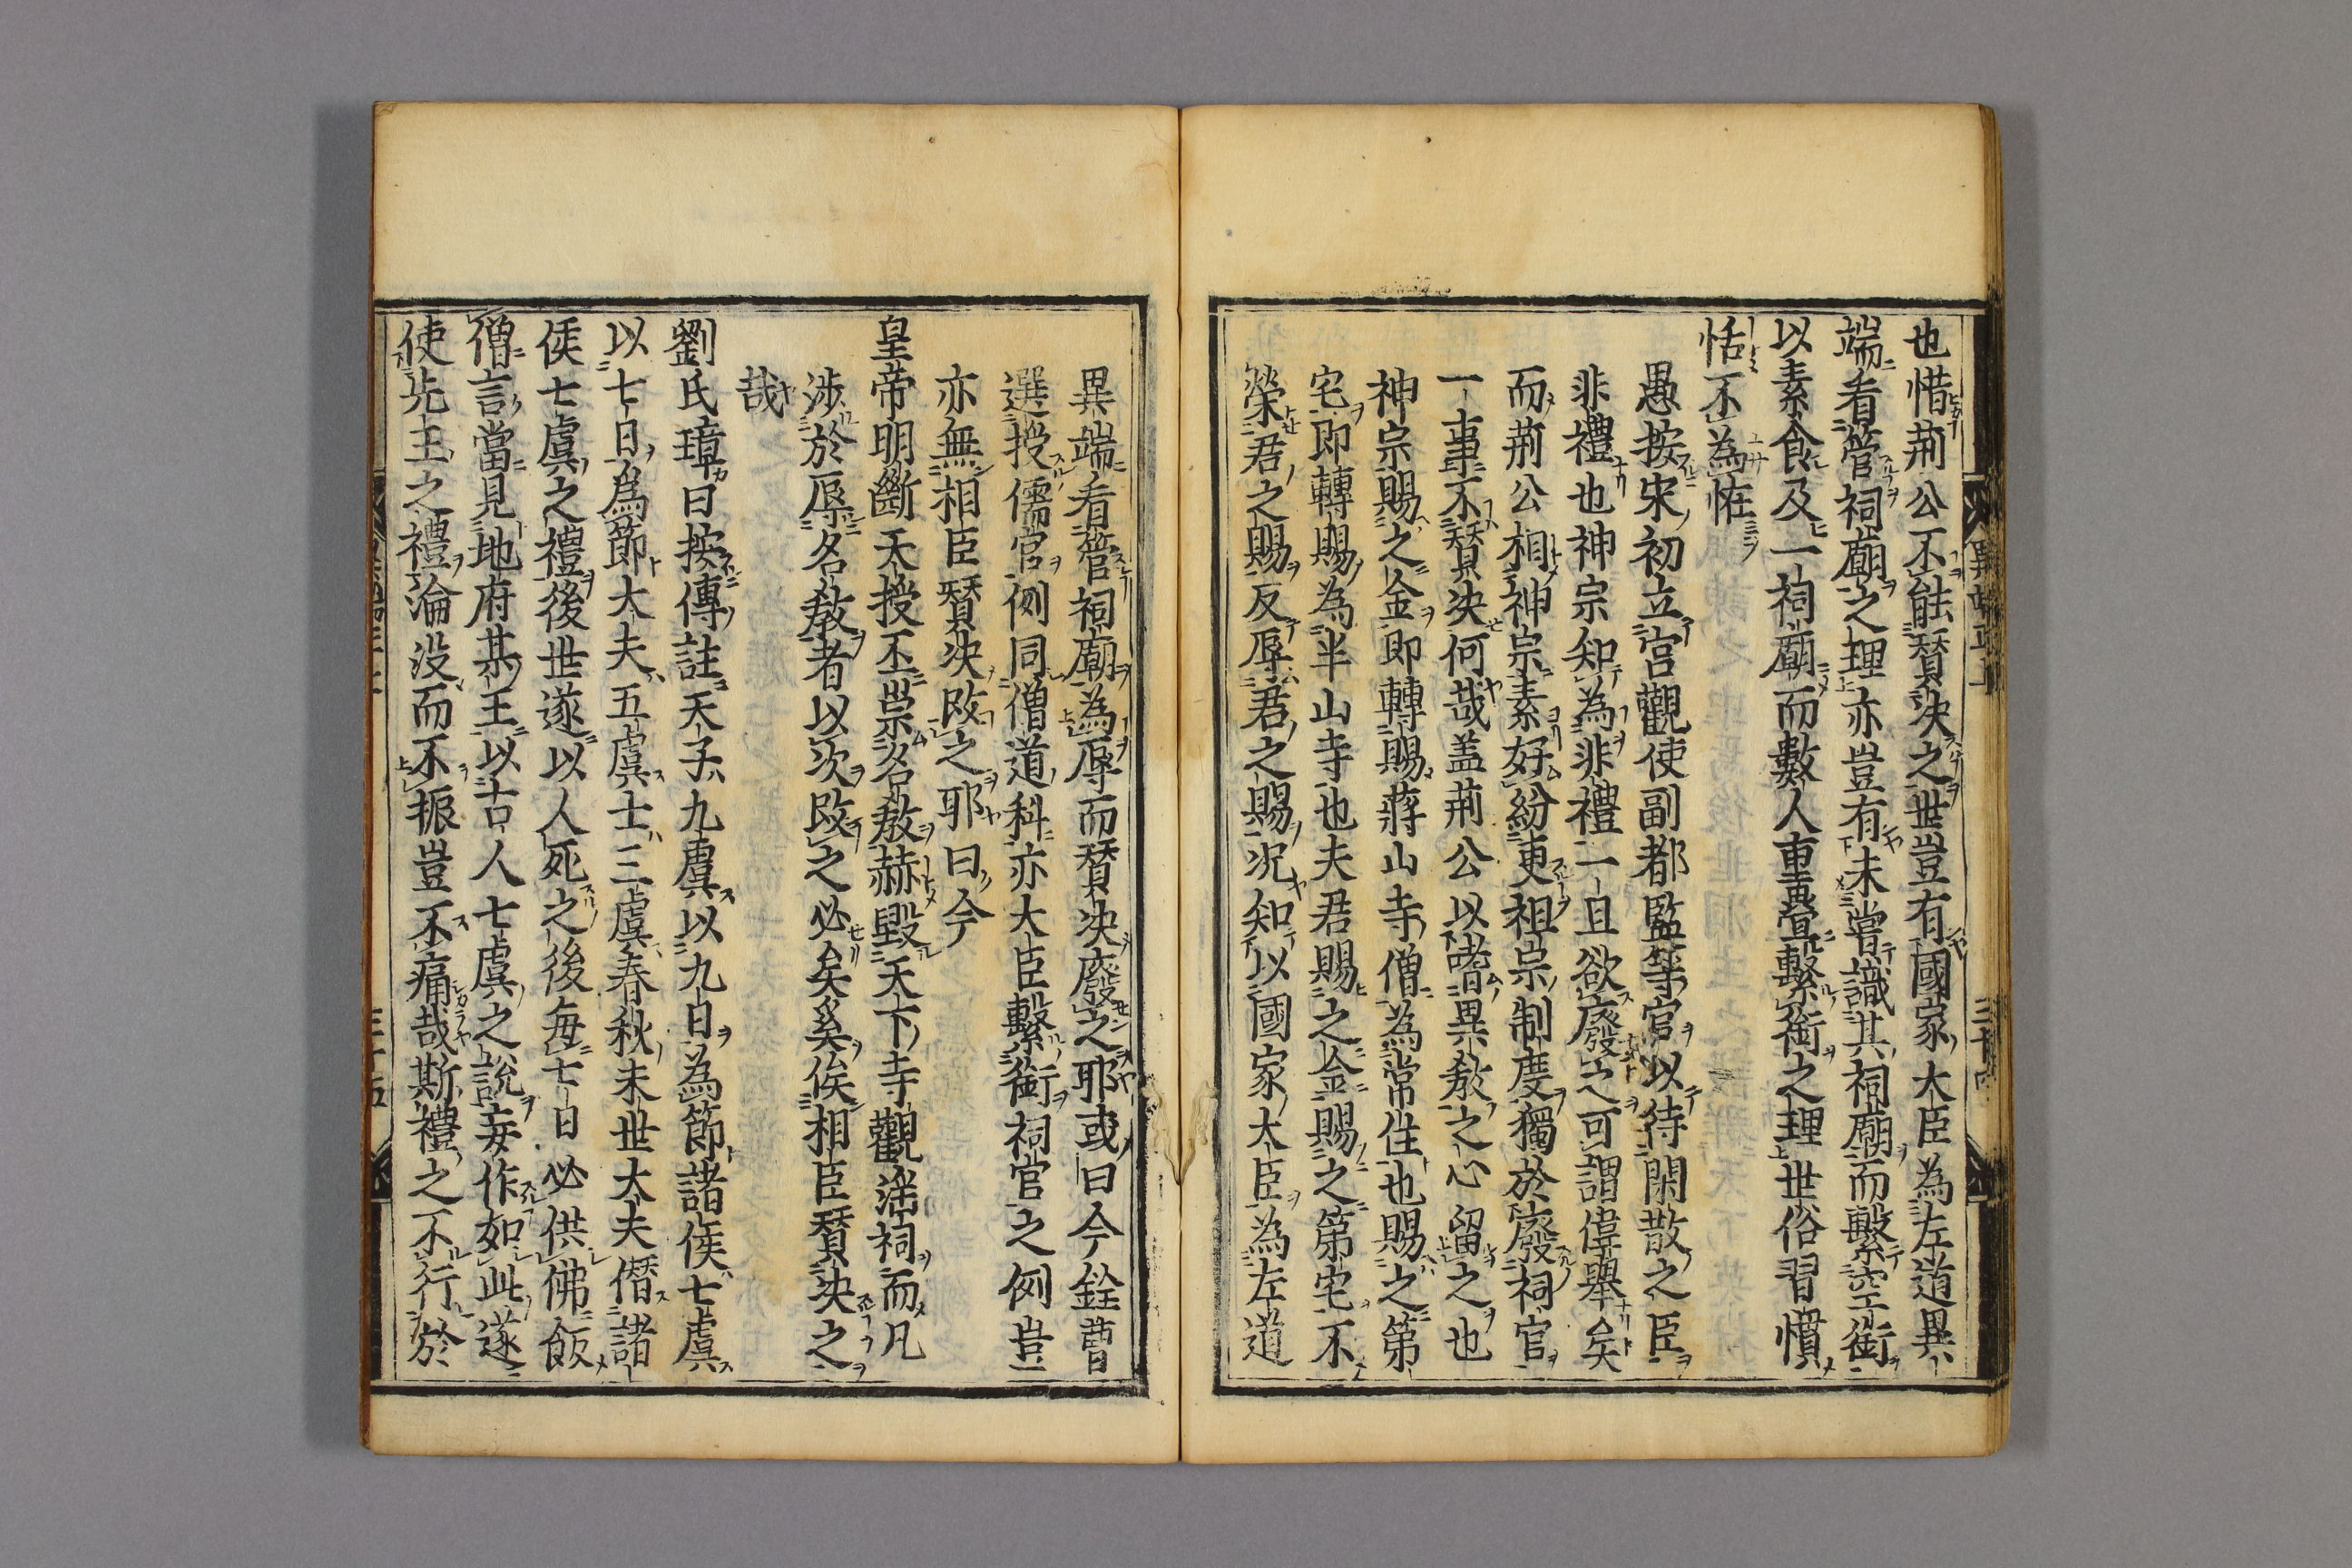 也惜荊公不能賛决之世豈有國家大臣為左道異
端看管祠廟之理亦豈有未嘗識其祠廟而繫空銜
以素食及一祠廟而數人重疊繫銜之理世俗習慣
恬不為恠
愚按宋初立宮觀使副都監等官以待閑散之臣
非禮也神宗知為非禮一旦欲廢之可謂偉舉矣
而荊公相神宗素好紛更祖宗制度獨於廢祠官
一事不賛决何哉盖荊公以嗜異教之心留之也
神宗賜之金即轉賜蔣山寺僧為常住也賜之第
宅即轉賜為半山寺也夫君賜之金賜之第宅不
榮君之賜反辱君之賜况知以國家大臣為左道
異端看管祠廟為辱而賛决廢之耶或曰今銓曹
選授儒官例同僧道科亦大臣繫銜祠官之例豈
亦無相臣賛决改之耶曰今
皇帝明斷天授丕崇名教赫毀天下寺觀淫祠而凡
渉於辱名教者以次改之必矣奚俟相臣賛决之
哉
劉氏璋曰按傳註天子九虞以九日為節諸侯七虞
以七日為節大夫五虞士三虞春秋末世大夫僭諸
侯七虞之禮後世遂以人死之後每七日必供佛飯
僧言當見地府某王以古人七虞之說妄作如此遂
使先王之禮淪没而不振豈不痛哉斯禮之不行於